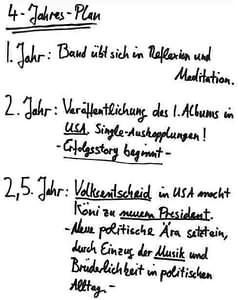 4-Jahres-Plan
1. Jahr: Band übt sich in Reflexion und
Meditation.
2. Jahr: Veröffentlichung des 1. Albums in
USA. Single-Auskopplungen!
- Erfolgsstory beginnt -
2,5. Jahr: Volksentscheid in USA macht
Köni zu neuem President.
- Neue politische Ära setzt ein,
durch Einzug der Musik und
Brüderlichkeit in politischen
Alltag -